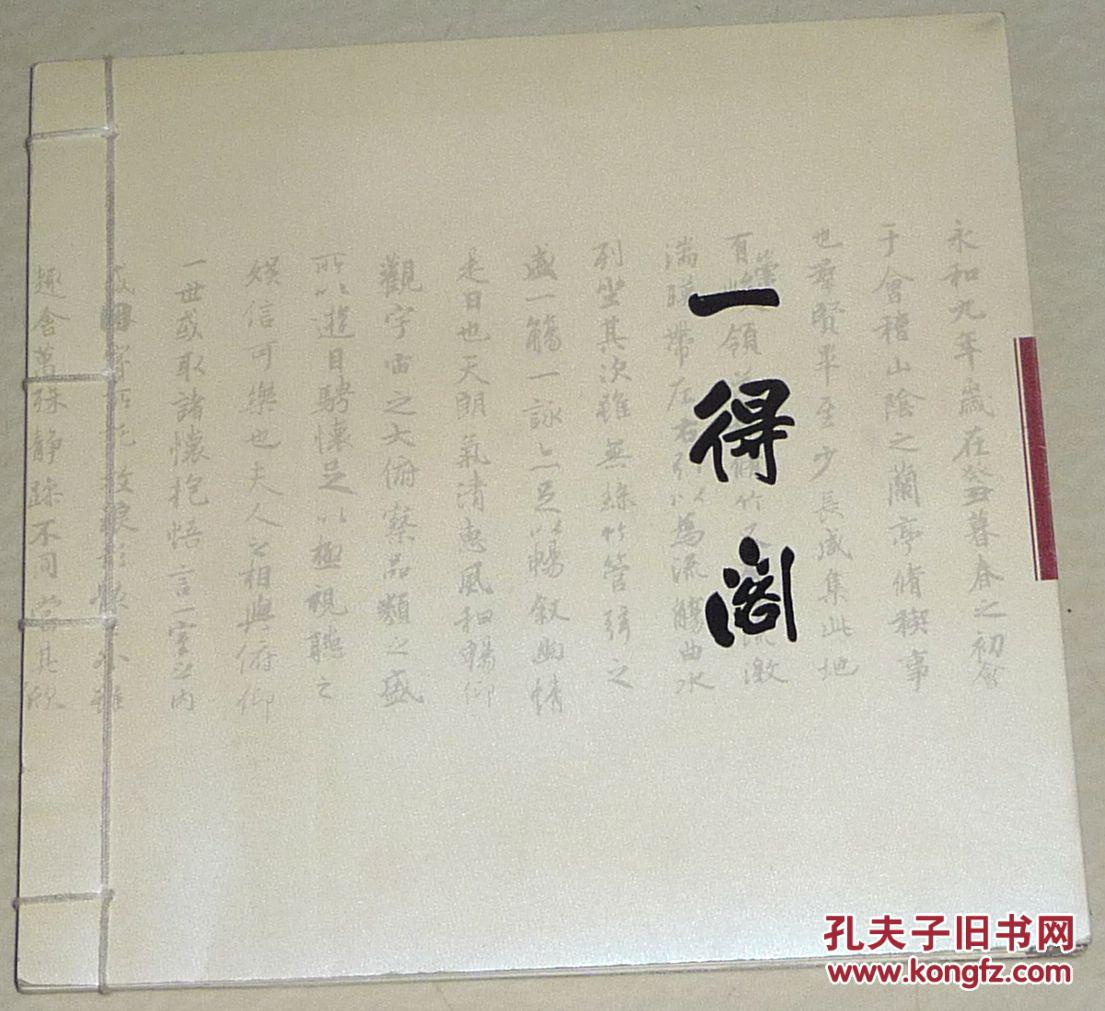 一得阁
永和九年歲在癸丑暮春之初會
于會稽山陰之蘭亭脩稧事
也羣賢畢至少長咸集此地
有領脩竹激
湍暎帶左右引以為流觴曲水
列坐其次雖無絲竹管弦之
盛一觴一詠亦足以暢敘幽情
是日也天朗氣清惠風和暢仰
觀宇宙之大俯察品類之盛
所以遊目騁懷足以極視聽之
娛信可樂也夫人之相與俯仰
一世或取諸懷抱悟言一室之內
或因寄所託放浪形骸之外雖
趣舍萬殊靜躁不同當其欣
孔夫子旧书网
www.kongfz.com